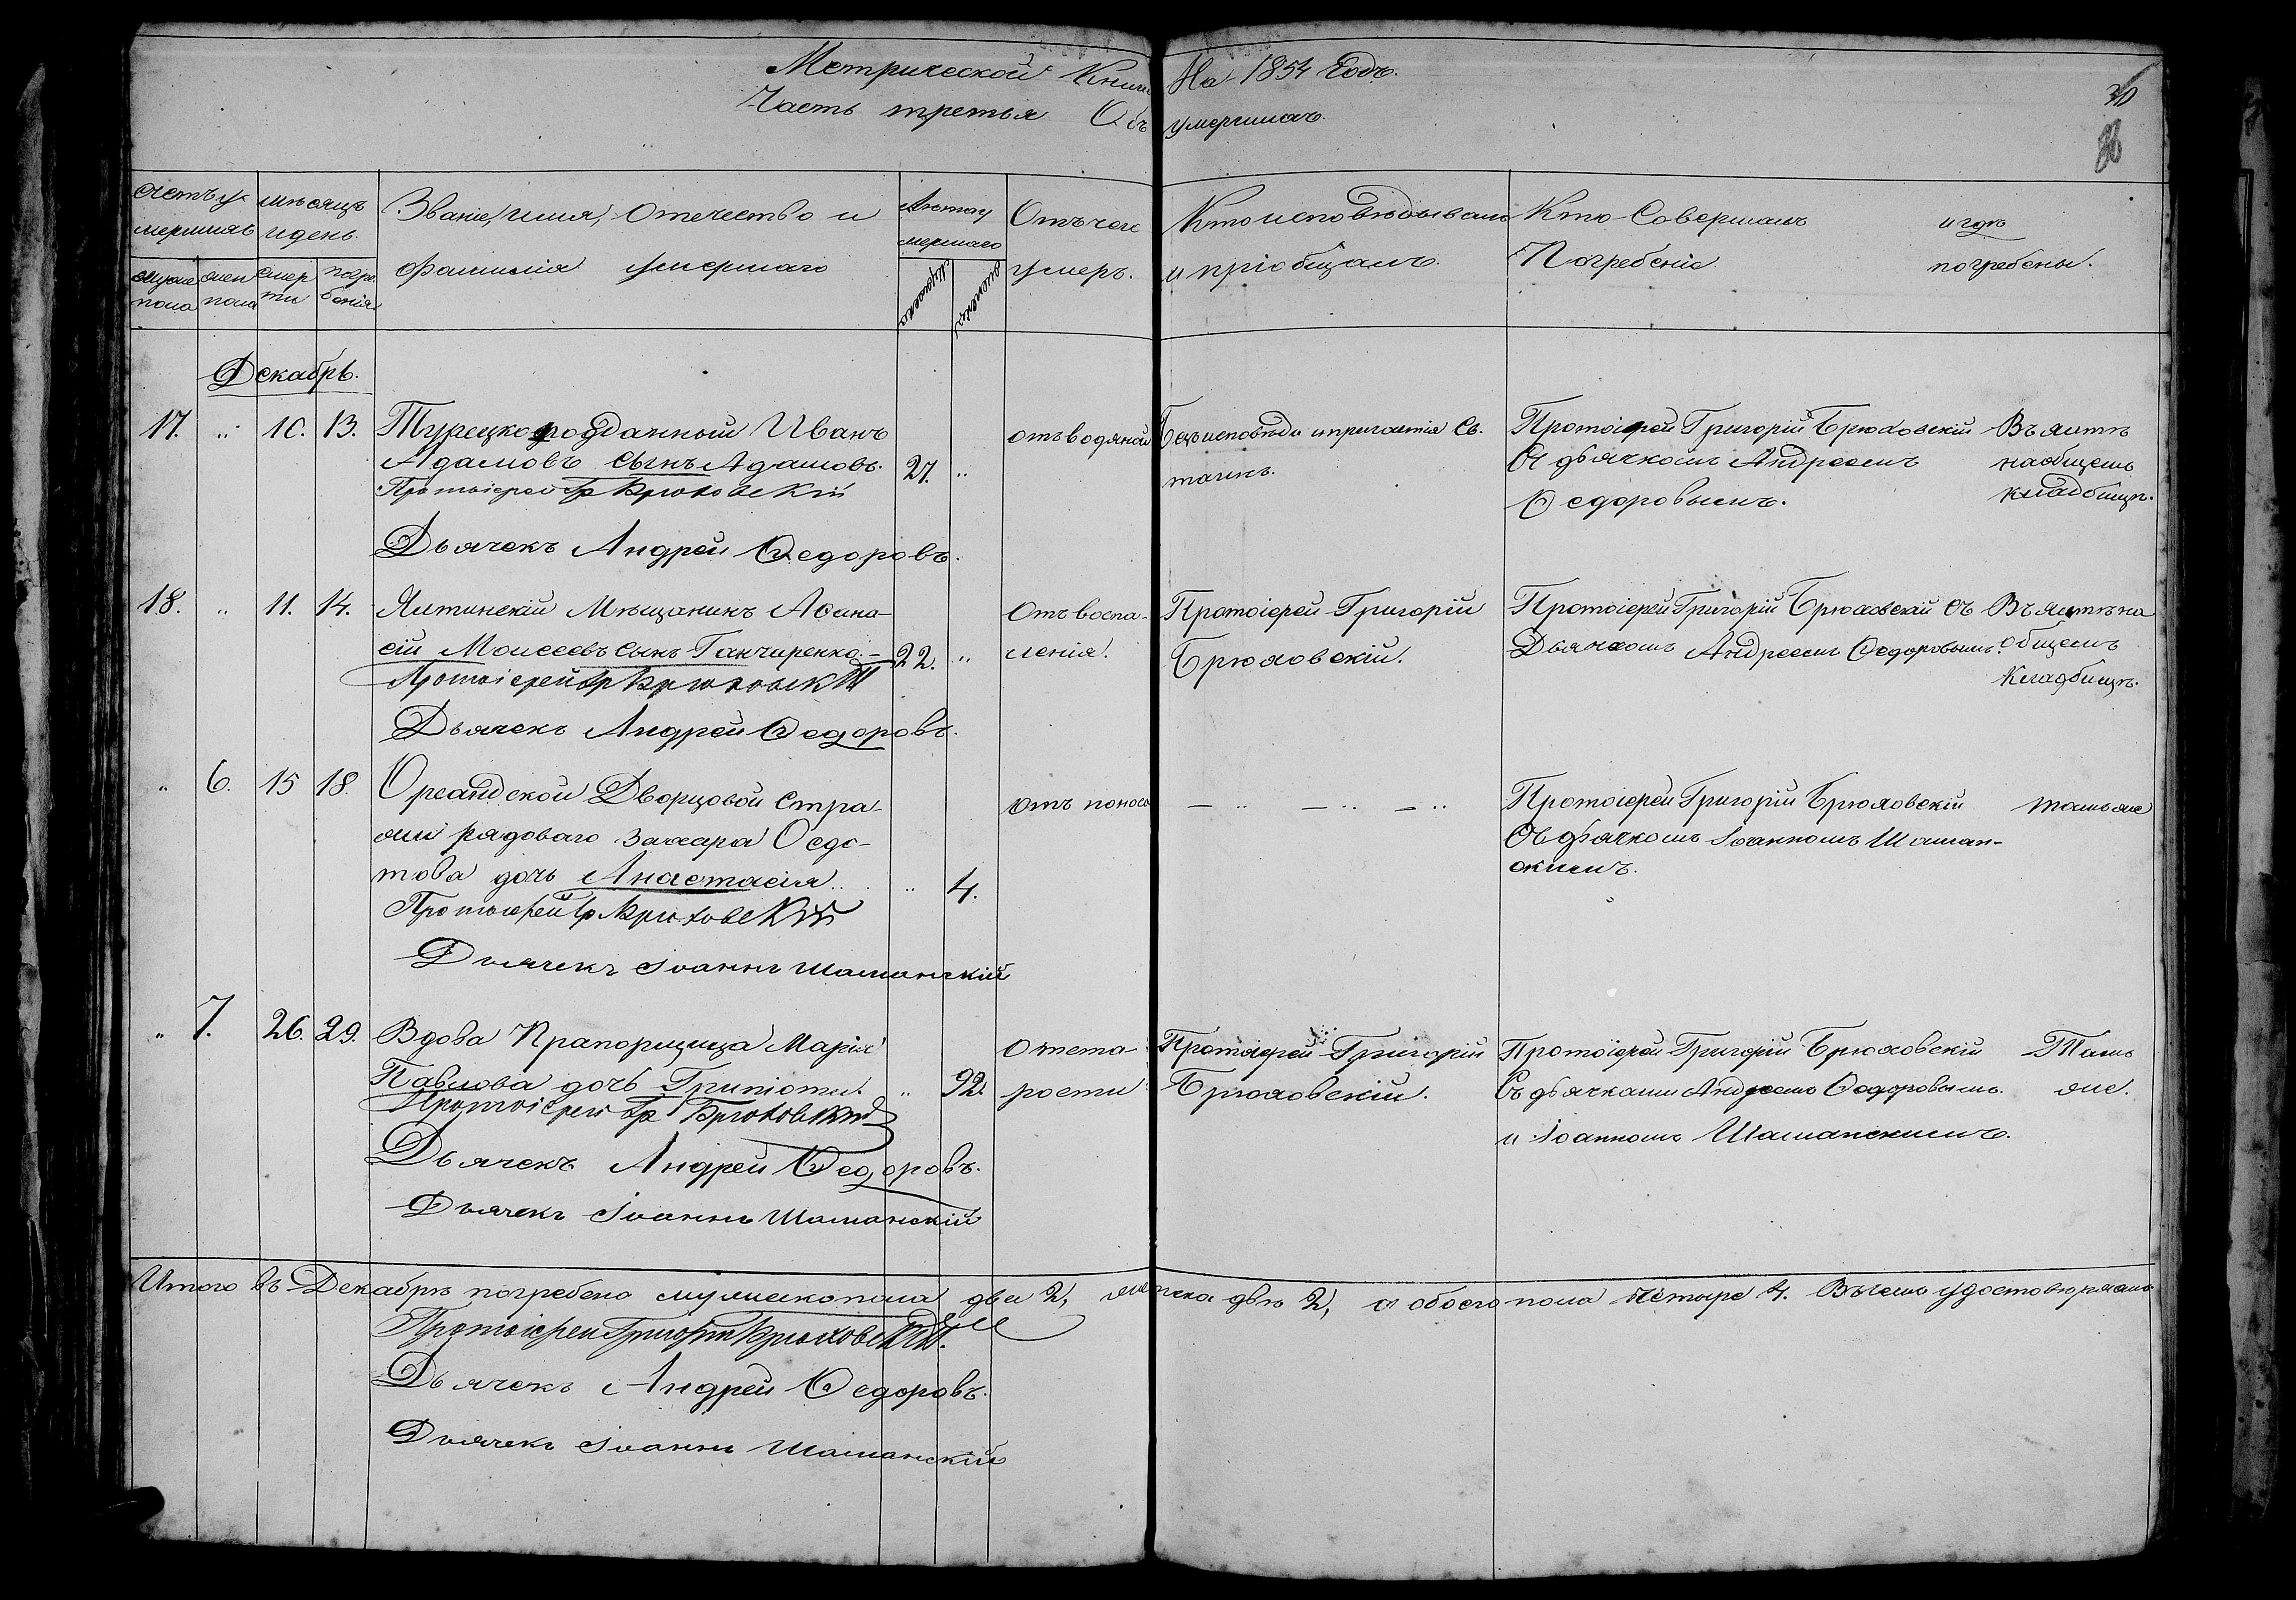 Метрической Книги На 1854 Годъ.
Часть третья Объ умершихъ.
30
Счетъ у-
мершихъ
мужес
пола
жен
пола
мѣсяцъ
и день.
смер
ти
погре
бенія
Званіе, имя, отечество и
фамилія умершаго
Лѣта у
мершаго
Мужеска
женска
Отъ чего
умеръ.
Кто исповѣдывалъ
и пріобщалъ.
Кто Совершалъ
Погребеніе.
и гдѣ
погребены.
Декабрь.
17. " 10. 13. Турецкоподданный Иванъ
Адамовъ сынъ Адамовъ. 27. "
Протоіерей Гр Брюховскій
Дьячекъ Андрей Ѳедоровъ.
отъ водяной
Безъ исповѣди и причастія Св.
таинъ.
Протоіерей Григорій Брюховскій
Съ дьячкомъ Андреемъ
Ѳедоровымъ.
Въ Ялтѣ
на общемъ
кладбищѣ.
18. " 11. 14. Ялтинскій Мѣщанинъ Аѳана-
сій Моисеевъ сынъ Ганчиренко. 22. "
Протоіерей Гр Брюховскій
Дьячекъ Андрей Ѳедоровъ.
Отъ воспа-
ленія.
Протоіерей Григорій
Брюховскій.
Протоіерей Григорій Брюховскій съ
Дьячкомъ Андреемъ Ѳедоровымъ.
Въ Ялтѣ на
общемъ
Кладбищѣ.
" 6. 15 18. Ореандской Дворцовой Стра-
жи рядоваго Захара Ѳедо-
това дочь Анастасія.. " 4.
Протоіерей Гр Брюховскій
Дьячекъ Іоаннъ Шаманскій
отъ поноса
— " — " — "
Протоіерей Григорій Брюховскій
Съ дьячкомъ Іоанномъ Шаман-
скимъ.
тамъ же
" 7. 26. 29. Вдова Прапорщица Марія
Павлова дочь Грипіоти. " 92.
Протоіерей Гр Брюховскій
Дьячекъ Андрей Ѳедоровъ.
Дьячекъ Іоаннъ Шаманскій
От ста-
рости
Протоіерей Григорій
Брюховскій.
Протоіерей Григорій Брюховскій
Съ дьячками Андреемъ Ѳедоровымъ.
и Іоанномъ Шаманскимъ.
Тамъ
же.
Итого въ Декабрѣ погребено мужеска пола два 2, женска двѣ 2, а обоего пола четыре 4. Въ чемъ удостовѣряемъ
Протоіерей Григорій Брюховскій.
Дьячекъ Андрей Ѳедоровъ.
Дьячекъ Іоаннъ Шаманскій